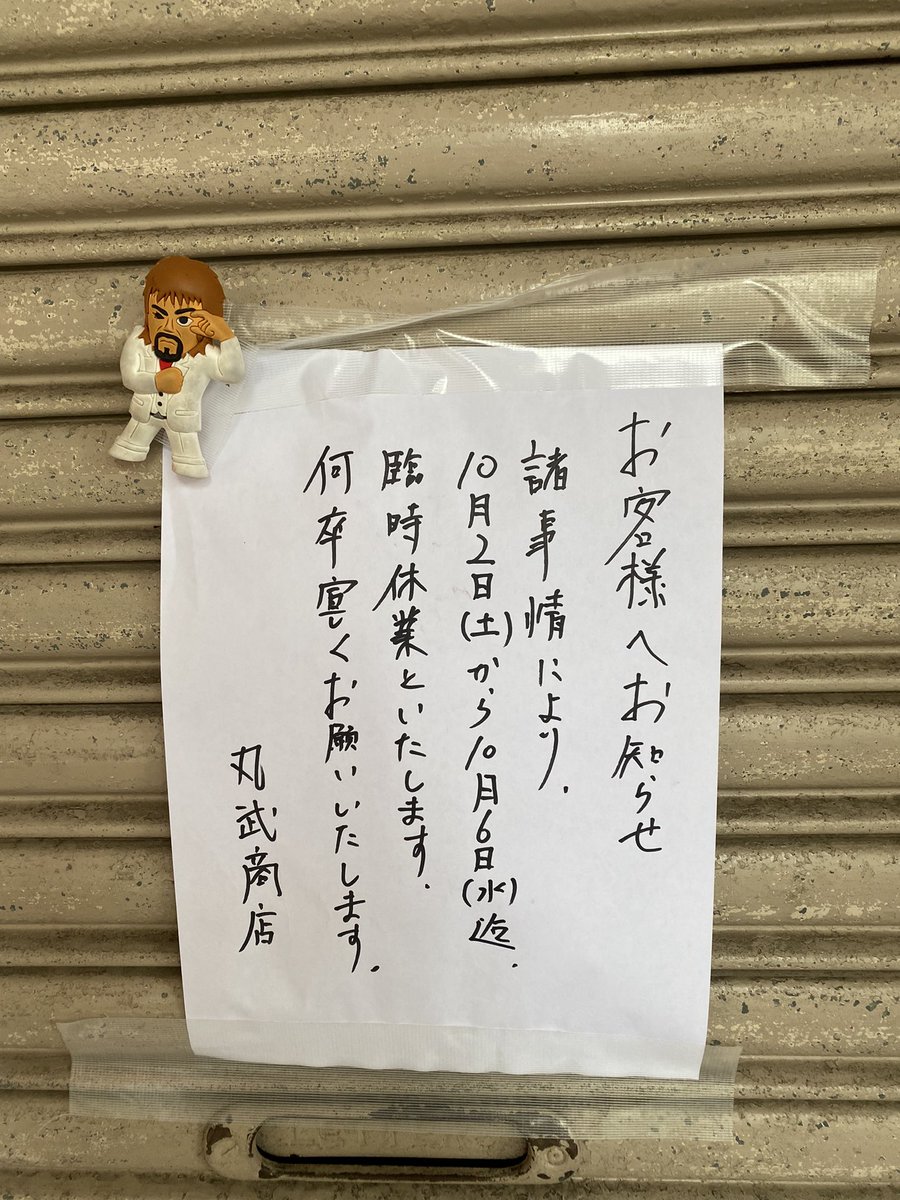 お客様へお知らせ
諸事情により、
10月2日(土)から10月6日(水)迄、
臨時休業といたします。
何卒宜しくお願いいたします。
丸武商店